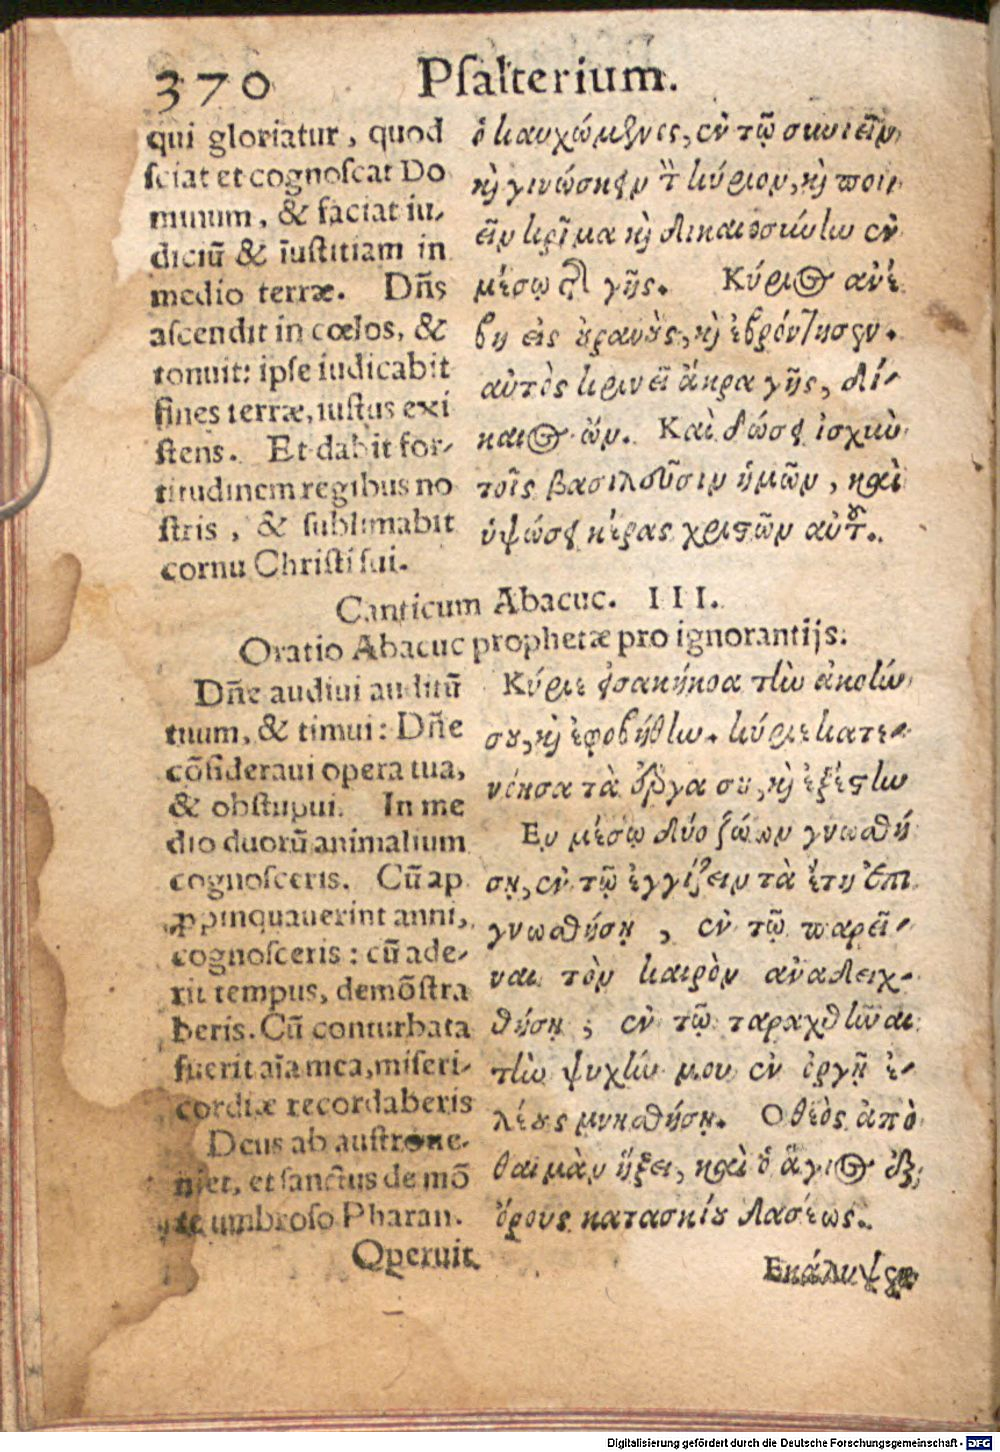 370 Psalterium.
qui gloriatur, quod
sciat et cognoscat Do
minum, & faciat iu-
diciũ & iustitiam in
medio terræ. Dñs
ascendit in cœlos, &
tonuit: ipse iudicabit
fines terræ, iustus exi
stens. Et dabit for-
titudinem regibus no
stris, & sublimabit
cornu Christi sui.
ὁ καυχώμενος, ἐν τῷ συνιεῖν
καὶ γινώσκειν τ κύριον, καὶ ποι-
εῖν κρῖμα καὶ δικαιοσύνην ἐν
μέσῳ τῆς γῆς. Κύριος ἀνέ
βη εἰς οὐρανοὺς, καὶ ἐβρόντησεν.
αὐτὸς κρινεῖ ἄκρα γῆς, δί-
καιος ὤν. Καὶ δώσει ἰσχὺν
τοῖς βασιλεῦσιν ἡμῶν, καὶ
ὑψώσει κέρας χριστῶν αὐτοῦ.
Canticum Abacuc. III.
Oratio Abacuc prophetæ pro ignorantijs.
Dñe audiui auditũ
tuum, & timui: Dñe
cõsideraui opera tua,
& obstupui. In me
dio duorũ animalium
cognosceris. Cũ ap
ꝓpinquauerint anni,
cognosceris: cũ ade-
rit tempus, demõstra
beris. Cũ conturbata
fuerit aĩa mea, miseri-
cordiæ recordaberis
Deus ab austro ue-
niet, et sanctus de mõ
te umbroso Pharan.
Operuit
Κύριε εἰσακήκοα τὴν ἀκοήν
σου, καὶ ἐφοβήθην. κύριε κατε-
νόησα τὰ ἔργα σου, καὶ ἐξέστην
Εν μέσῳ δύο ζώων γνωσθή
σῃ, ἐν τῷ ἐγγίζειν τὰ ἔτη ἐπι
γνωσθήσῃ, ἐν τῷ παρεῖ-
ναι τὸν καιρὸν ἀναδειχ-
θήσῃ, ἐν τῷ ταραχθῆναι
τὴν ψυχήν μου ἐν ὀργῇ ἐ-
λέους μνησθήσῃ. Ο θεὸς ἀπὸ
θαιμὰν ἥξει, καὶ ὁ ἅγιος ἐξ
ὄρους κατασκίου δασέως.
Εκάλυψεν
Digitalisierung gefördert durch die Deutsche Forschungsgemeinschaft - DFG